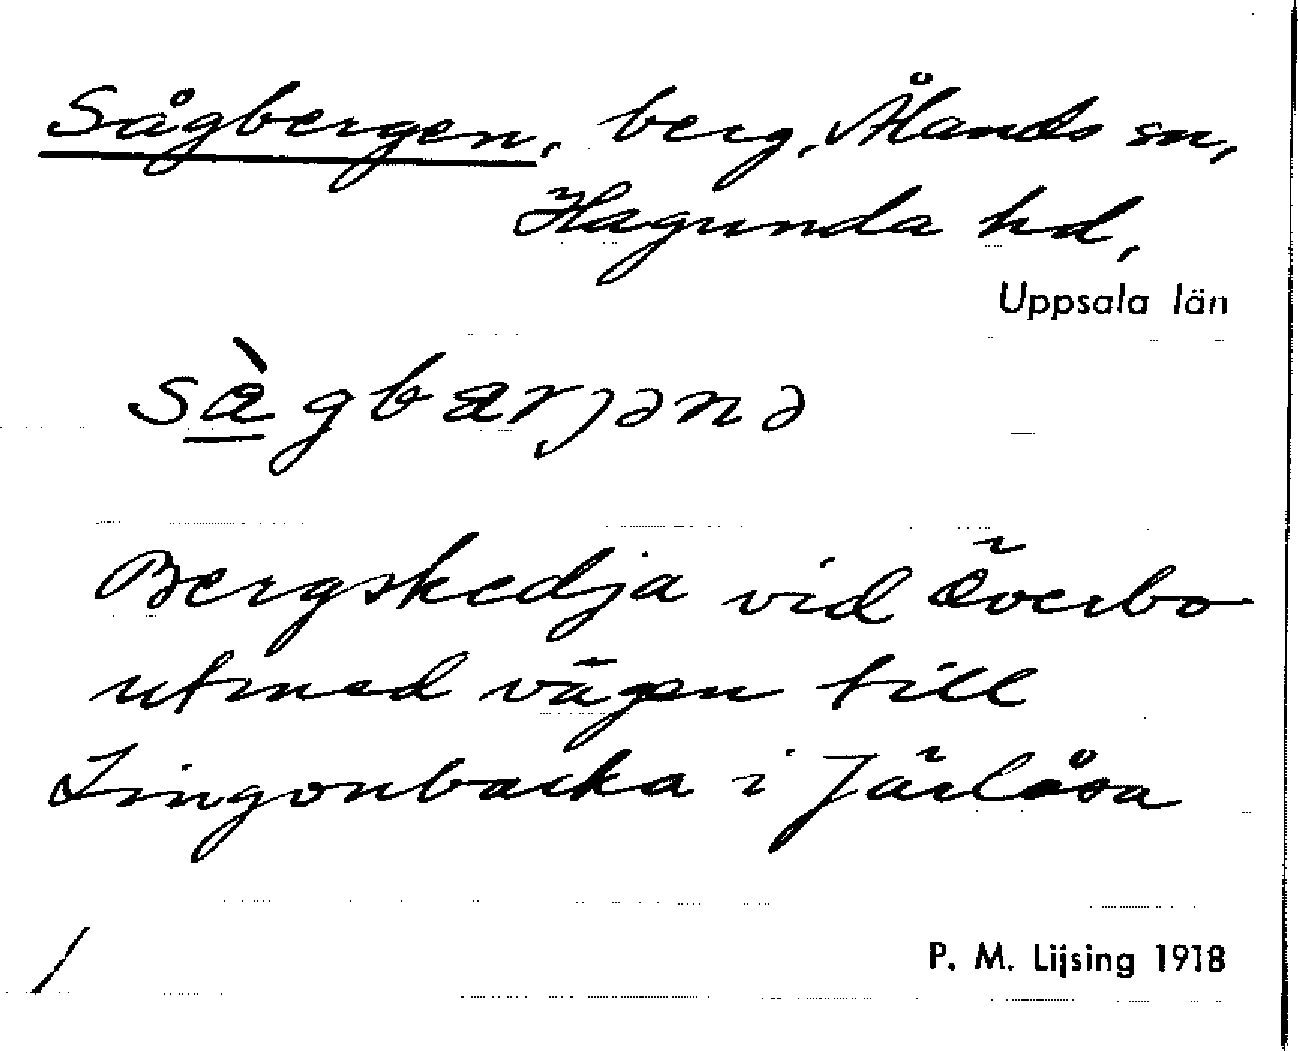 Sågbergen, berg, Ålands sn,
Hagunda hd,
Uppsala län
sàgbærjənə
Bergskedja vid Överbo
utmed vägen till
Lingonbacka i Järlåsa
P. M. Lijsing 1918